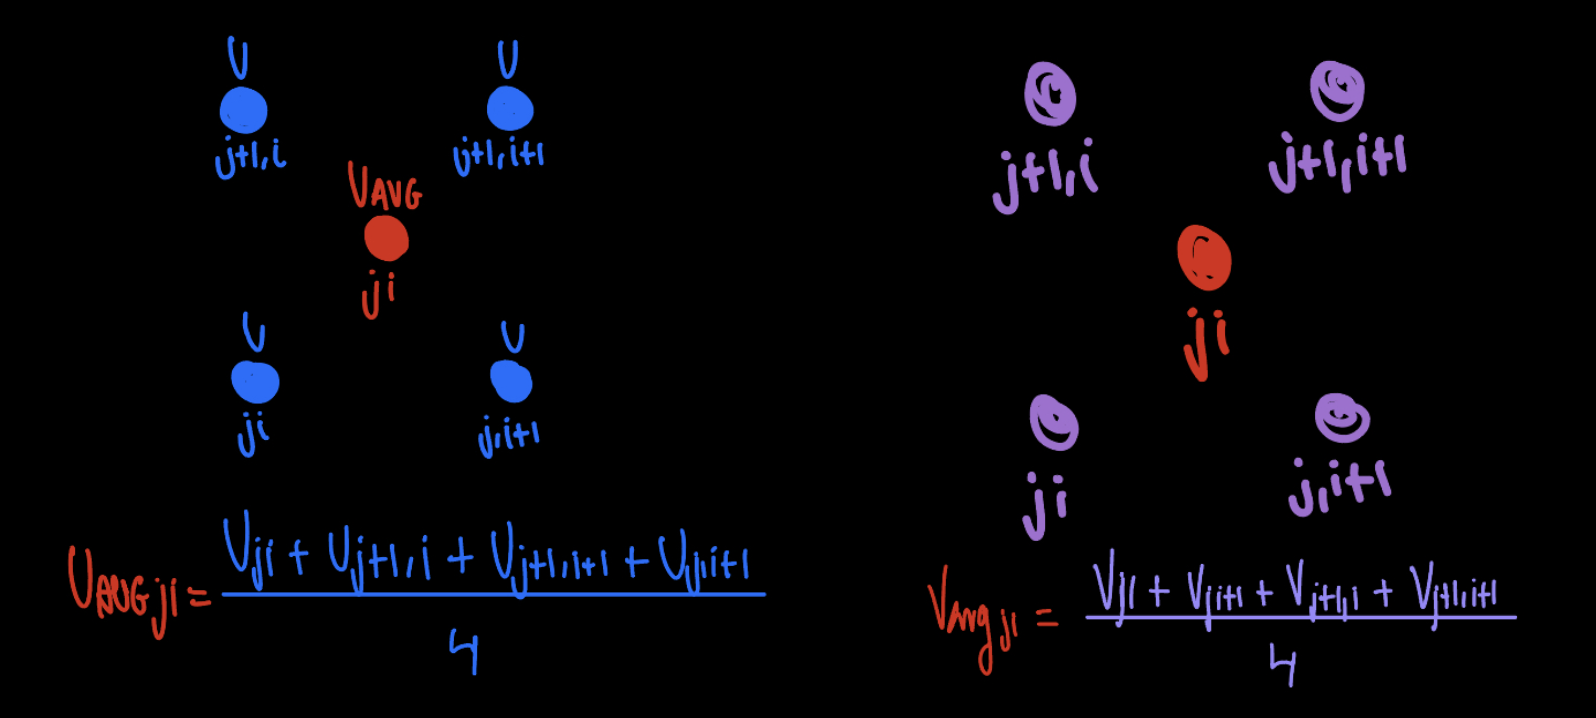 U U
j+1,i j+1,i+1
UAVG
ji
U U
ji j,i+1
UAVG ji = Uji + Uj+1,i + Uj+1,i+1 + Uj,i+1
4
j+1,i j+1,i+1
ji
ji j,i+1
VAvg ji = Vji + Vji+1 + Vj+1,i + Vj+1,i+1
4